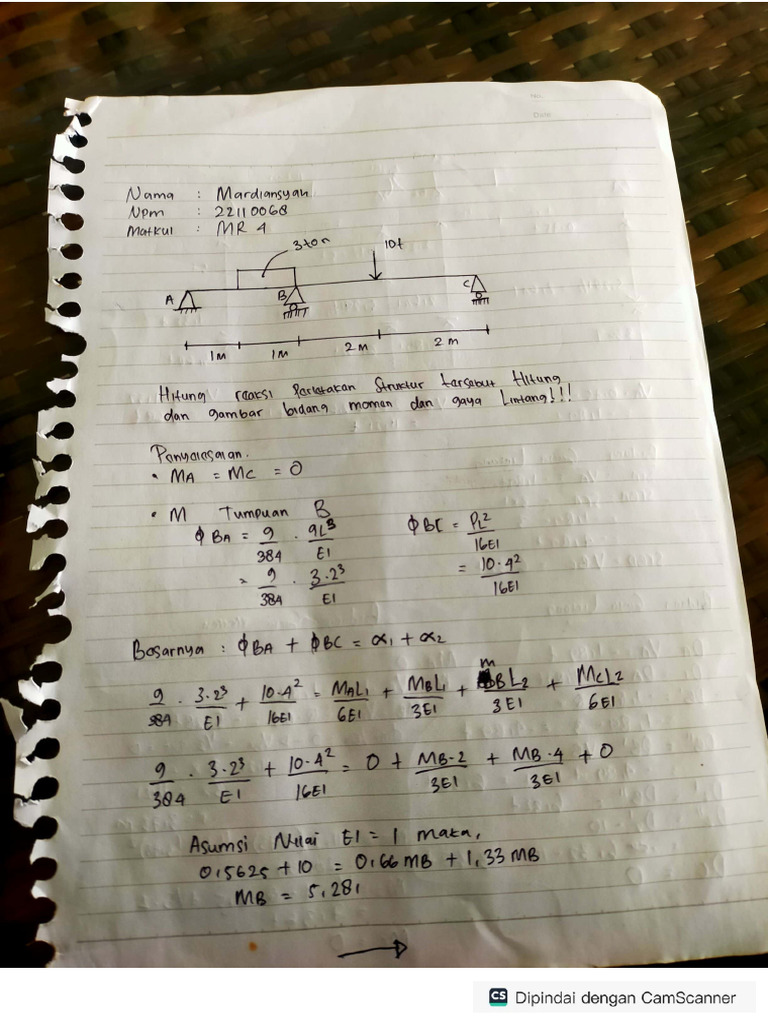 No.
Date:
Nama : Mardiansyah
Npm : 22110068
Matkul : MR 4
3 ton 10t
A B C
1M 1M 2M 2M
Hitung reaksi Perletakan Struktur tersebut Hitung
dan gambar bidang momen dan gaya Lintang!!!
Penyelesaian.
• MA = MC = 0
• M Tumpuan B
ϕBA = 9/384 . qL³/EI ϕBC = PL²/16EI
= 9/384 . 3.2³/EI = 10.4²/16EI
Besarnya : ϕBA + ϕBC = α1 + α2
9/384 . 3.2³/EI + 10.4²/16EI = MAL1/6EI + MBL1/3EI + MBL2/3EI + MCL2/6EI
9/384 . 3.2³/EI + 10.4²/16EI = 0 + MB.2/3EI + MB.4/3EI + 0
Asumsi Nilai EI = 1 maka,
0,5625 + 10 = 0,66 MB + 1,33 MB
MB = 5,281
CS Dipindai dengan CamScanner